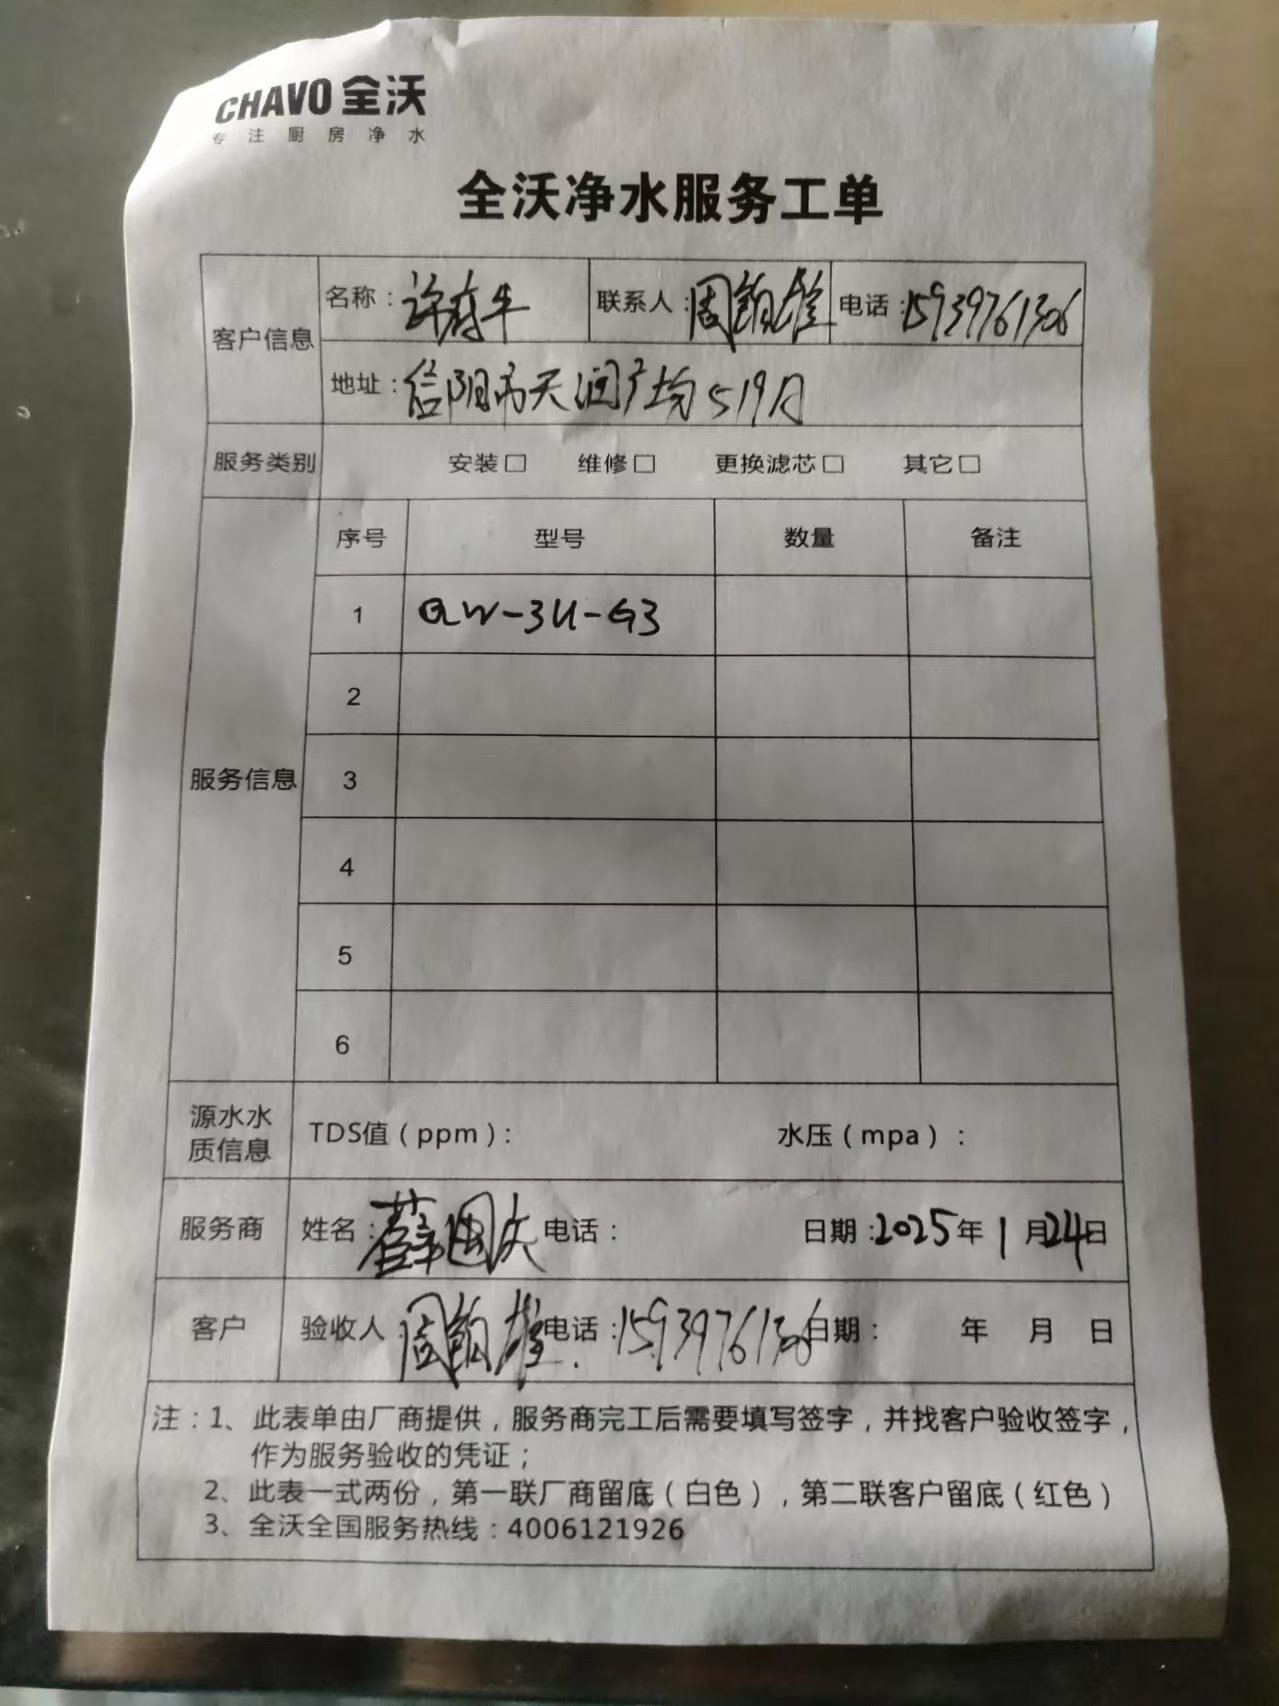 CHAVO 全沃
专注厨房净水
全沃净水服务工单
客户信息
名称：许府牛
联系人：周
电话：15939761306
地址：信阳市天润广场519月
服务类别
安装□ 维修□ 更换滤芯□ 其它□
服务信息
序号 型号 数量 备注
1 QW-3U-G3
2
3
4
5
6
源水水质信息
TDS值（ppm）： 水压（mpa）：
服务商 姓名：薛国庆 电话： 日期：2025年1月24日
客户 验收人：周 电话：15939761306 日期： 年 月 日
注：1、此表单由厂商提供，服务商完工后需要填写签字，并找客户验收签字，
作为服务验收的凭证；
2、此表一式两份，第一联厂商留底（白色），第二联客户留底（红色）
3、全沃全国服务热线：4006121926